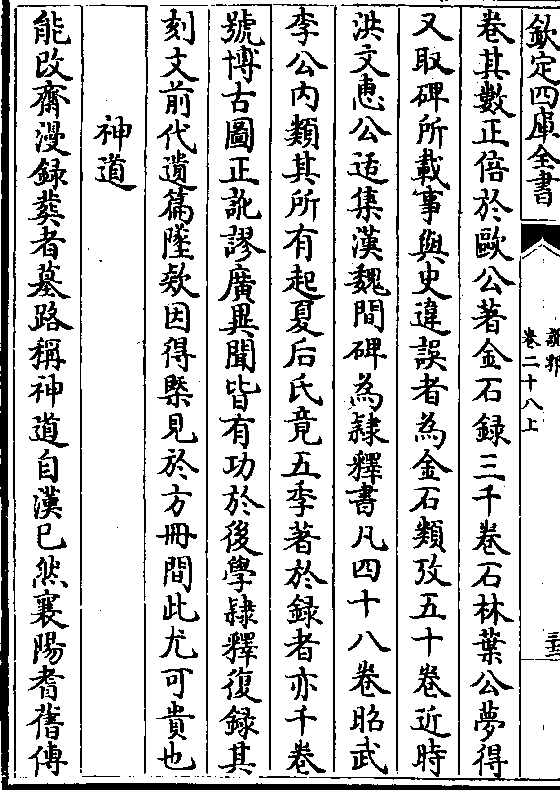 欽定四庫全書
卷二十八上
卷其數正倍於歐公著金石録三千卷石林葉公夢得
又取碑所載事與史違誤者為金石類攷五十卷近時
洪文惠公适集漢魏間碑為隸釋書凡四十八卷昭武
李公内類其所有起夏后氏竟五季著於録者亦千卷
號博古圖正訛謬廣異聞皆有功於後學隸釋復録其
刻文前代遺篇墜欵因得槩見於方冊間此尤可貴也
神道
能改齋漫録葬者墓路稱神道自漢已然襄陽耆舊傳